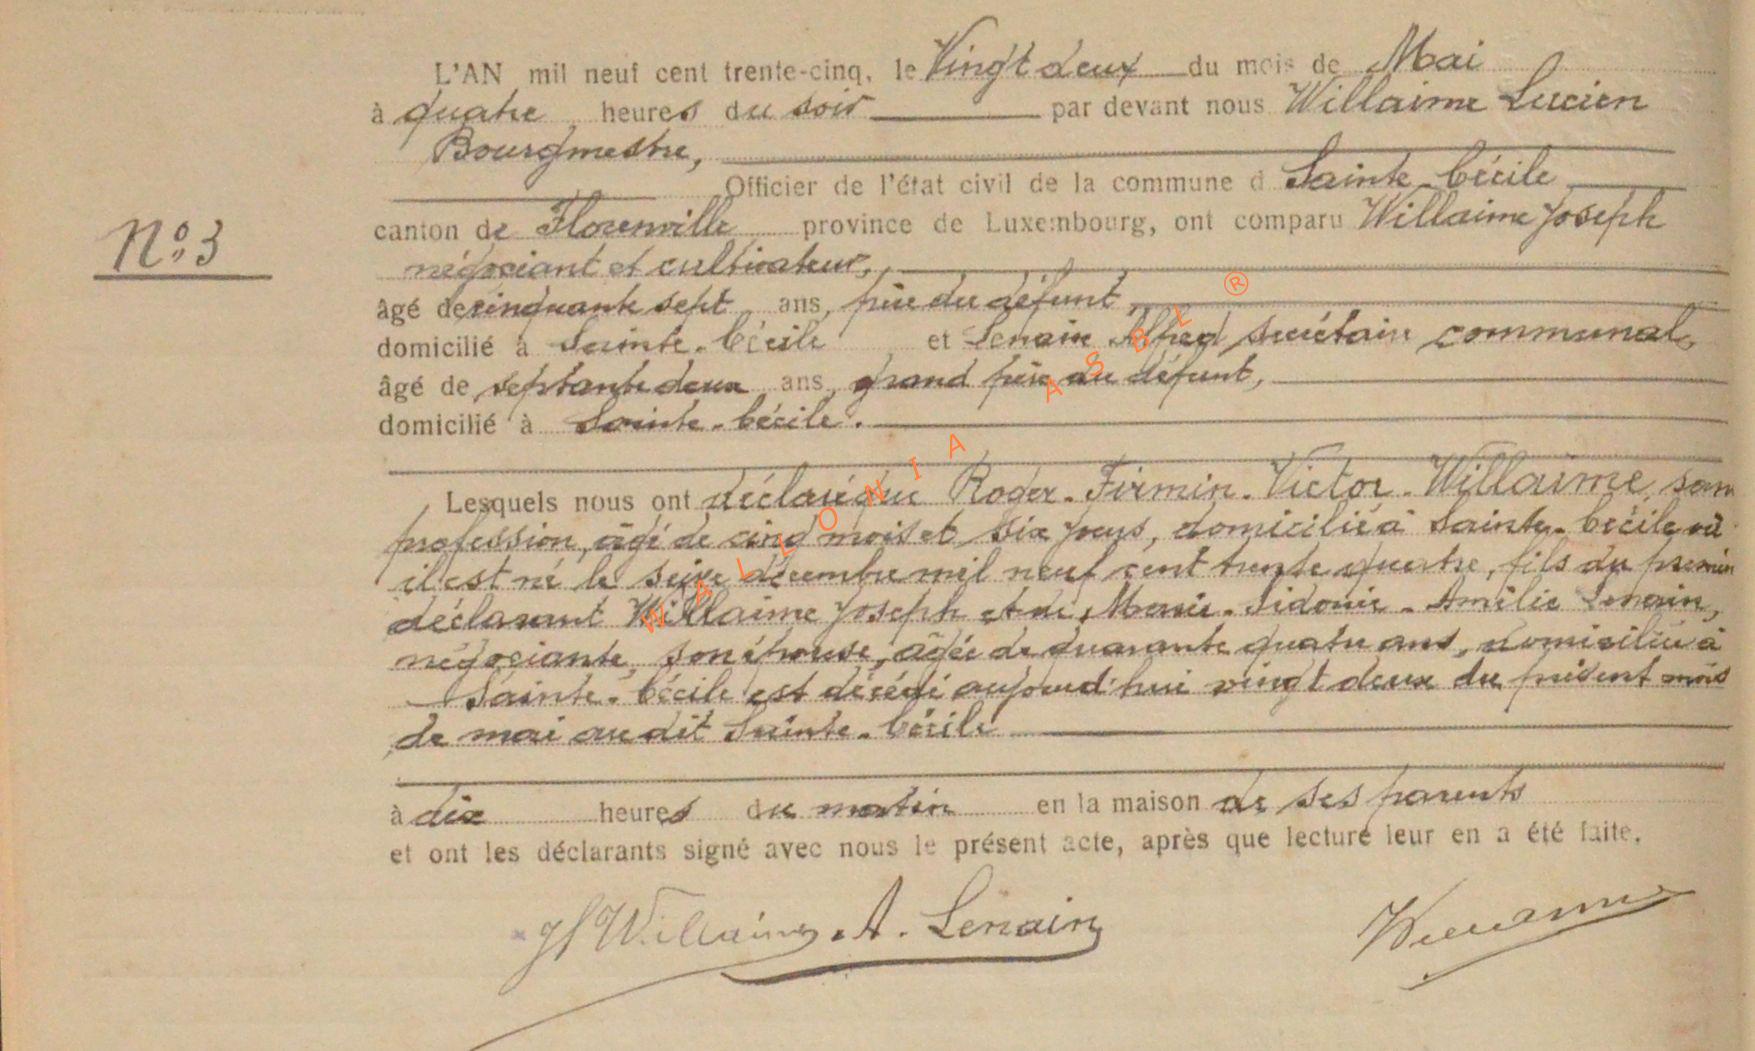 L'AN mil neuf cent trente-cinq, le Vingt deux du mois de Mai
à quatre heures du soir par devant nous Willaime Lucien
Bourgmestre,
Officier de l'état civil de la commune d Sainte-Cécile
N° 3
canton de Florenville province de Luxembourg, ont comparu Willaime Joseph
négociant et cultivateur,
âgé de cinquante sept ans, père du défunt,
domicilié à Sainte-Cécile et Lenain Alfred secrétaire communal,
âgé de septante deux ans, grand père du défunt,
domicilié à Sainte-Cécile.
Lesquels nous ont déclaré que Roger-Firmin-Victor-Willaime, sans
profession, âgé de cinq mois et six jours, domicilié à Sainte-Cécile où
il est né le seize décembre mil neuf cent trente quatre, fils du premier
déclarant Willaime Joseph et de Marie-Sidonie-Amélie Lenain,
négociante, son épouse, âgée de quarante quatre ans, domiciliée à
Sainte-Cécile est décédé aujourd'hui vingt deux du présent mois
de mai au dit Sainte-Cécile
à dix heures du matin en la maison de ses parents
et ont les déclarants signé avec nous le présent acte, après que lecture leur en a été faite.
Willaime A. Lenain
WALLONIA ASBL ®